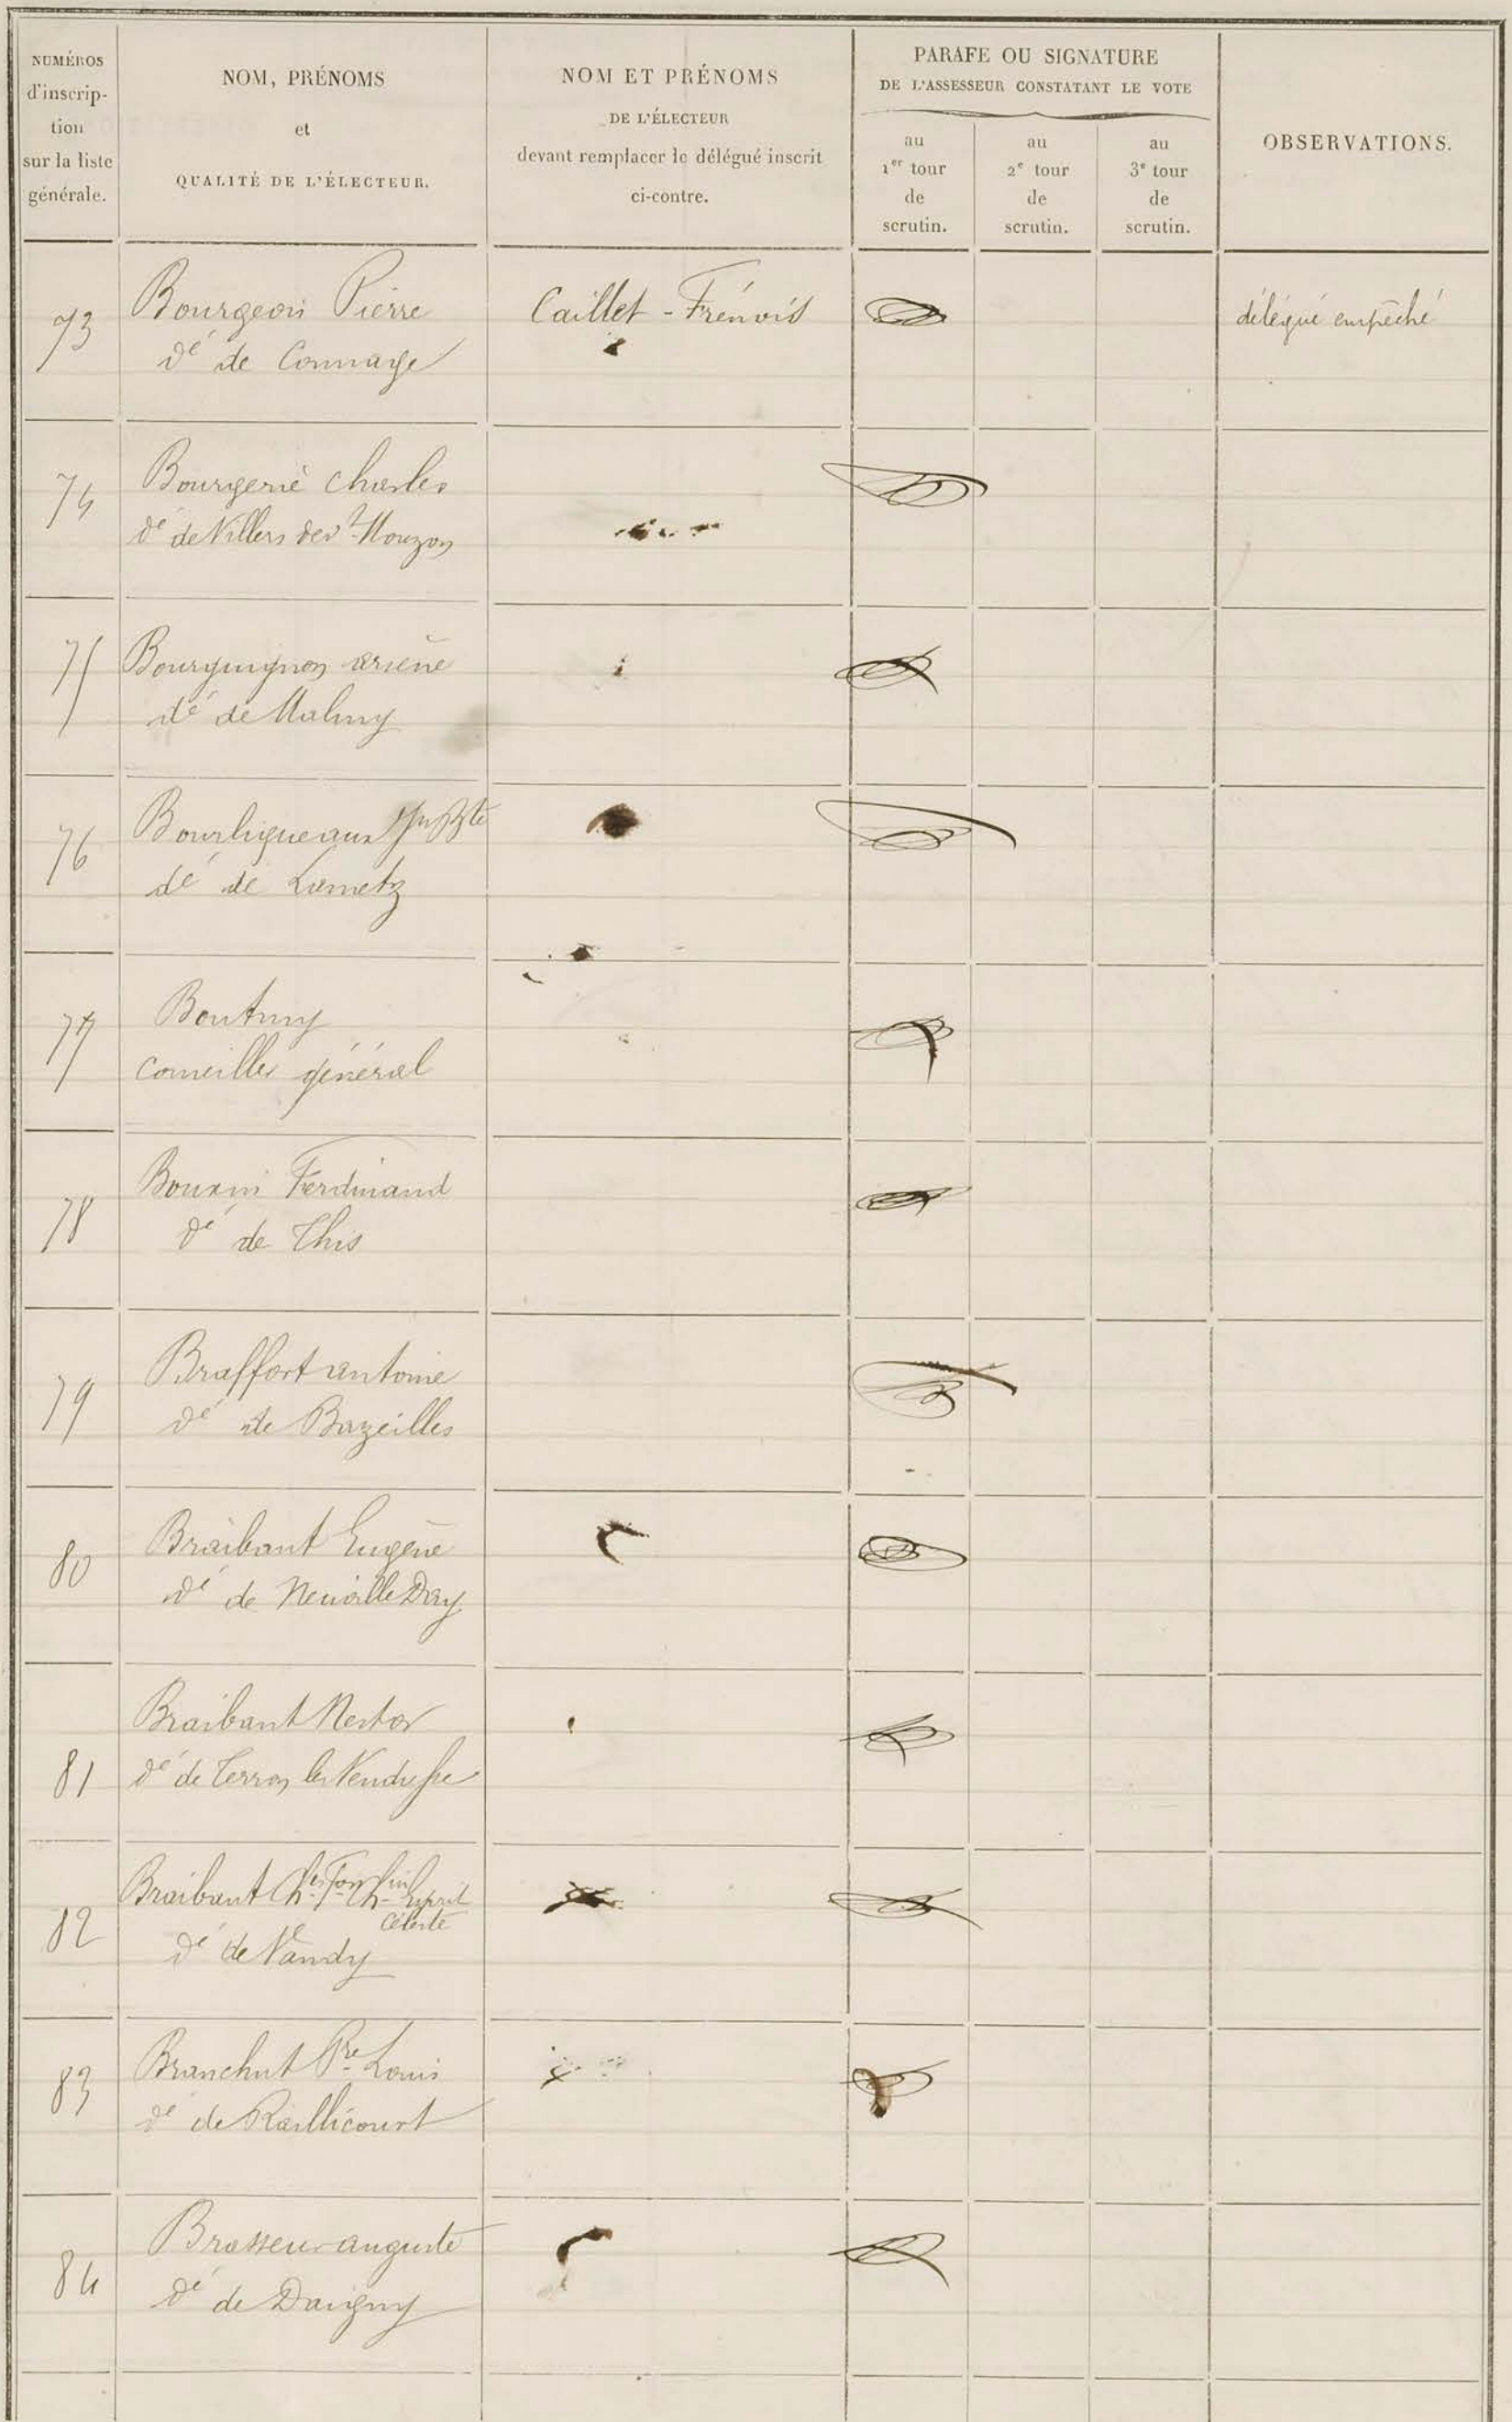 NUMÉROS
d'inscrip-
tion
sur la liste
générale.
NOM, PRÉNOMS
et
QUALITÉ DE L'ÉLECTEUR.
NOM ET PRÉNOMS
DE L'ÉLECTEUR
devant remplacer le délégué inscrit
ci-contre.
PARAFE OU SIGNATURE
DE L'ASSESSEUR CONSTATANT LE VOTE
au
1er tour
de
scrutin.
au
2e tour
de
scrutin.
au
3e tour
de
scrutin.
OBSERVATIONS.
73 Bourgeois Pierre Caillet - Frénois délégué empêché
dé de Connage
74 Bourgerie Charles
dé de Villers devt Mouzon
75 Bourguignon arsène
dé de Malmy
76 Bourligueaux Jn Bte
dé de Lametz
77 Boutmy
Conseiller général
78 Bouxin Ferdinand
dé de This
79 Braffort antoine
dé de Bazeilles
80 Braibant Eugène
dé de Neuville Day
81 Braibant Nestor
dé de Terron les Vendresse
82 Braibant
Céleste
dé de Vandy
83 Branchut Pre Louis
dé de Raillicourt
84 Brasseur auguste
dé de Daigny